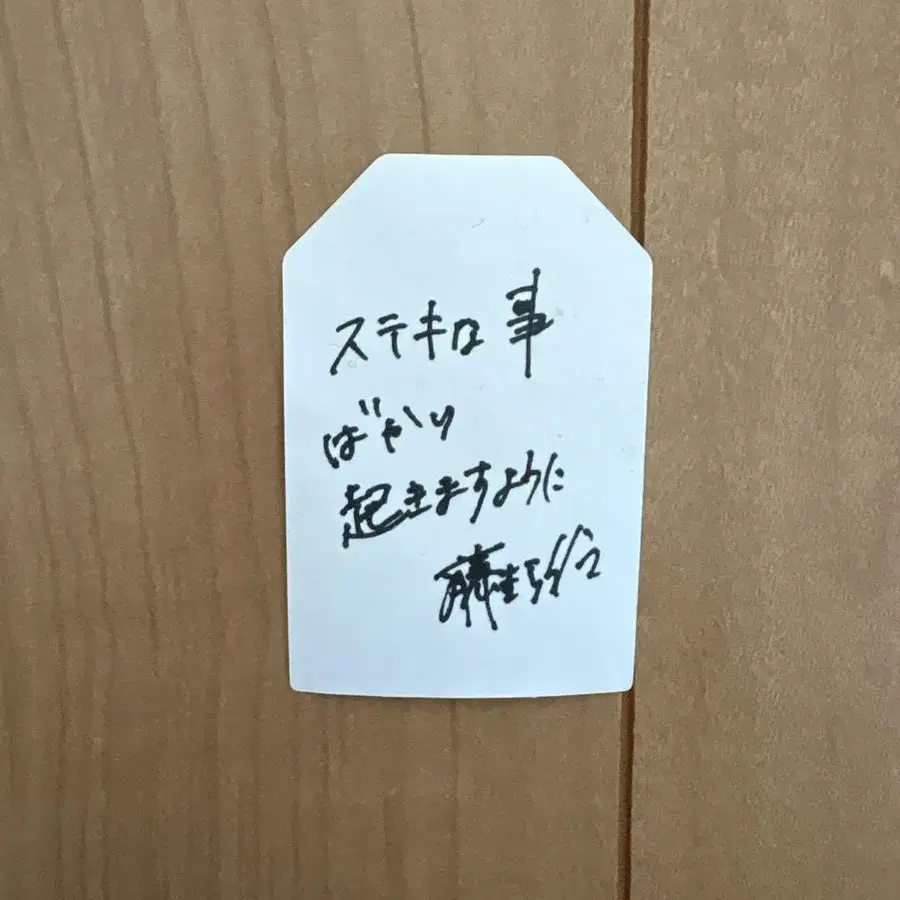 ステキな事
ばかり
起きますように
藤生